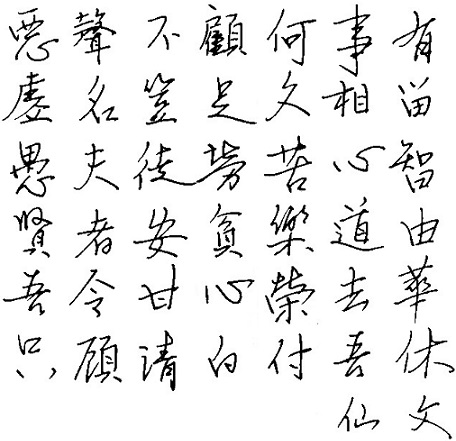 惡聲不顧何事有
虛名豈足久相留
愚夫徒勞苦心智
賢者安貧樂道由
吾今甘心榮去華
只願清白付吾休
仙文